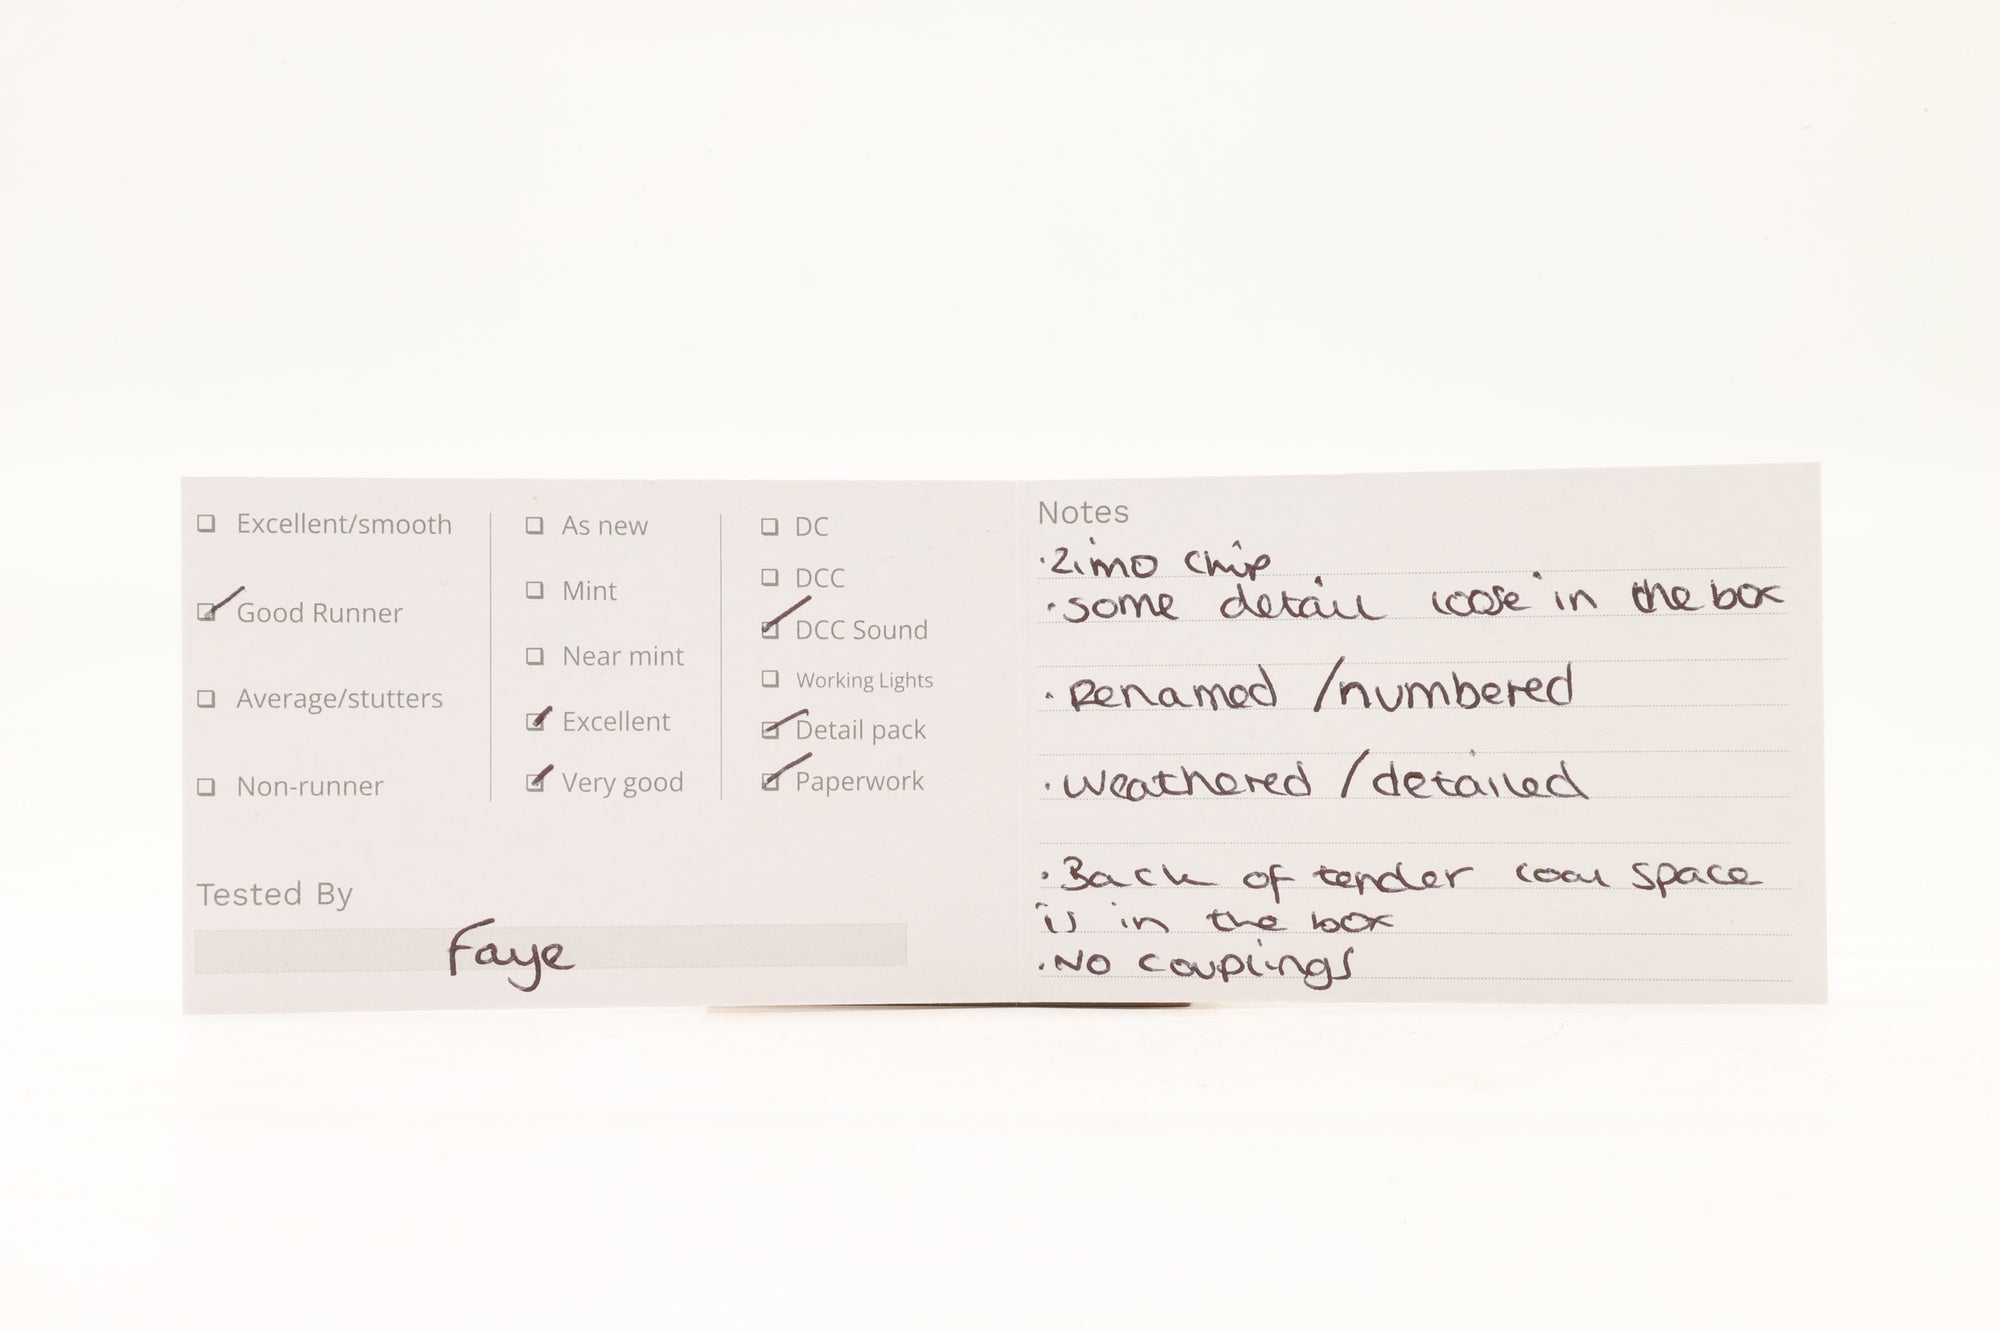 Excellent/smooth
Good Runner
Average/stutters
Non-runner
As new
Mint
Near mint
Excellent
Very good
DC
DCC
DCC Sound
Working Lights
Detail pack
Paperwork
Tested By
Faye
Notes
·Zimo chip
·some detail loose in the box
·Renamed /numbered
·weathered /detailed
·Back of tender coal space
is in the box
·No couplings